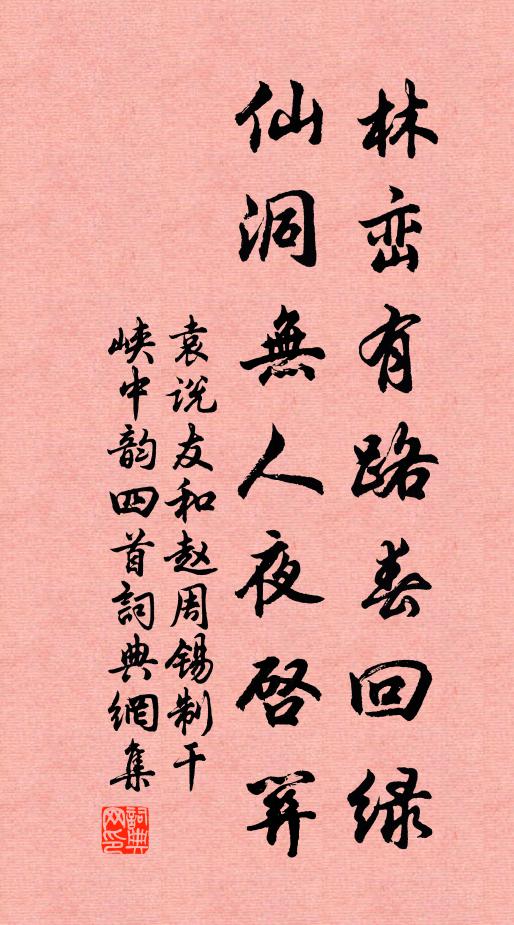 林峦有路春回绿
仙洞無人夜启笄
袁说友和赵周锡制干
峡中韵四首詞典網集
詞典网印